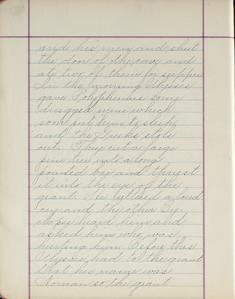 and his men and shut
the door of the cave and
ate five of them for supper
In the morning Ulysses
gave Polyphemus some
drugged wine which
soon put him to sleep
and the Greeks stole
out. They cut a large
pine tree into a long
pointed bar and thrust
it into the eye of the
giant. He uttered a loud
cry and the other Cy-
clops heard him and
asked him who was
hurting him. Before this
Ulysses had told the giant
that his name was
Noman so the giant